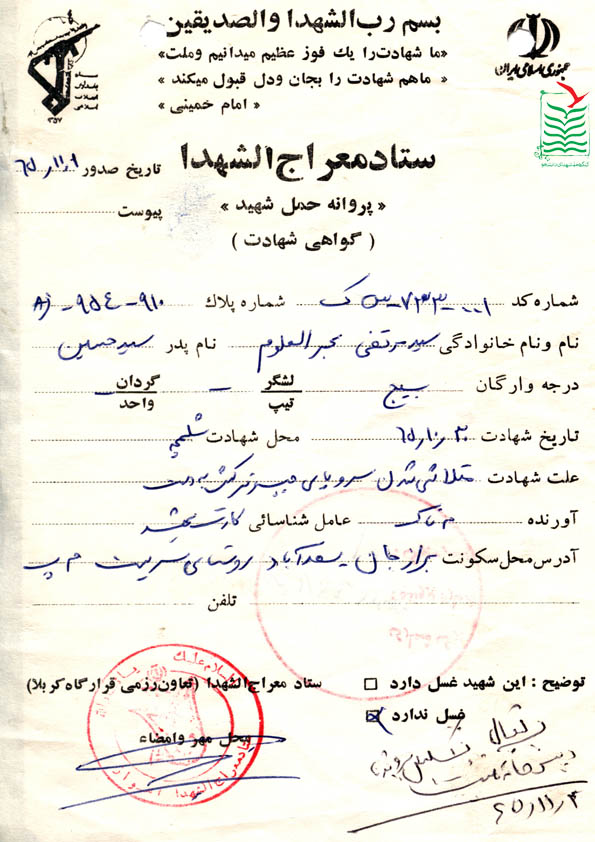 بسم رب الشهدا والصدیقین
«ما شهادت را یك فوز عظیم میدانیم وملت»
« ماهم شهادت را بجان ودل قبول میکند »
« امام خمینی »
جمهوری اسلامی ایران
سپاه پاسداران انقلاب اسلامی
۱۳۵۷
ستاد معراج الشهدا
تاریخ صدور ۶۵/۱۱/۱
« پروانه حمل شهید »
پیوست
( گواهی شهادت )
شماره کد ۰۰۰۱-۷۲۳۳-س ک شماره پلاك ۹۱۰-۹۵۴-AJ
نام ونام خانوادگی سید مرتضی بحرالعلوم نام پدر سید حسین
درجه وارگان بسیج لشگر تیپ - گردان واحد -
تاریخ شهادت ۶۵/۱۰/۳۰ محل شهادت شلمچه
علت شهادت متلاشی شدن سر و پای چپ ترکش به دست
آورنده عامل شناسائی کارت شهید
آدرس محل سکونت برازجان - سعدآباد روستای
تلفن
توضیح : این شهید غسل دارد □
ستاد معراج الشهدا (تعاون رزمی قرارگاه کربلا)
غسل ندارد ☒
محل مهر وامضاء
۶۵/۱۱/۴